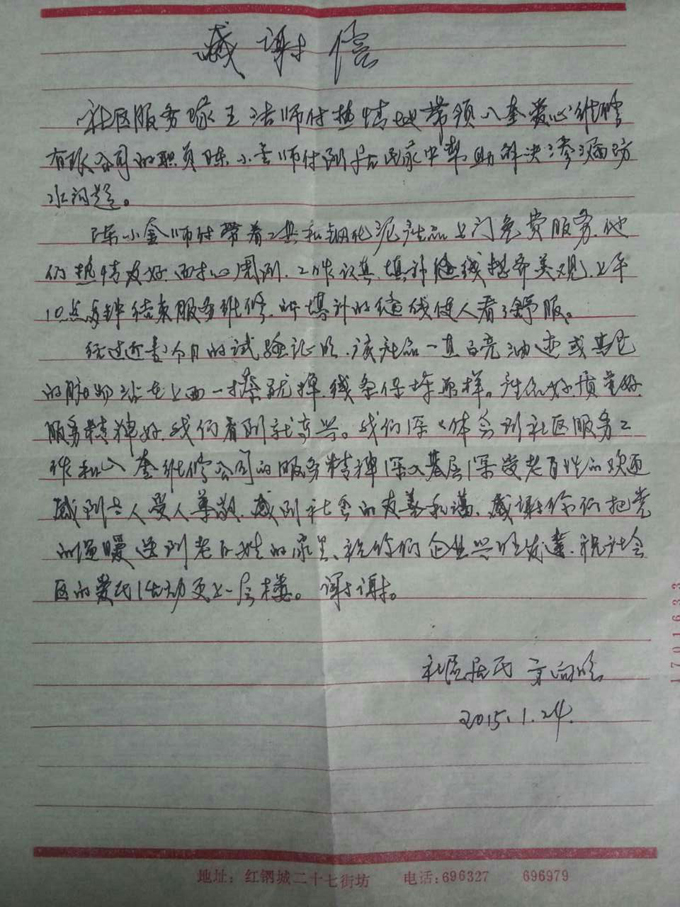 感谢信
社区服务队王洁师付热情地带领八奎爱心维修
有限公司的职员陈小金师付到居民家中帮助解决渗漏防
水问题。
陈小金师付带着工具和钢化泥产品上门免费服务，他
们热情友好，工作认真，填补缝线整齐美观，上午
10点多钟结束服务维修，所填补的缝线使人看了舒服。
经过近个月的试验证明，该产品一直白亮油迹或其它
的脏物沾在上面一擦就掉线条保持原样。产品好质量好
服务精神好，我们看到就高兴。我们深深体会到社区服务工
作和八奎维修公司的服务精神深入基层深受老百姓的欢迎
感到老人受人尊敬，感到社会的友善和谐，感谢你们把党
的温暖送到老百姓的家里，祝你们企业兴旺发达，祝社会
区的爱民活动更上一层楼。谢谢。
社区居民
2015.1.24.
1701633
地址：红钢城二十七街坊 电话：696327 696979